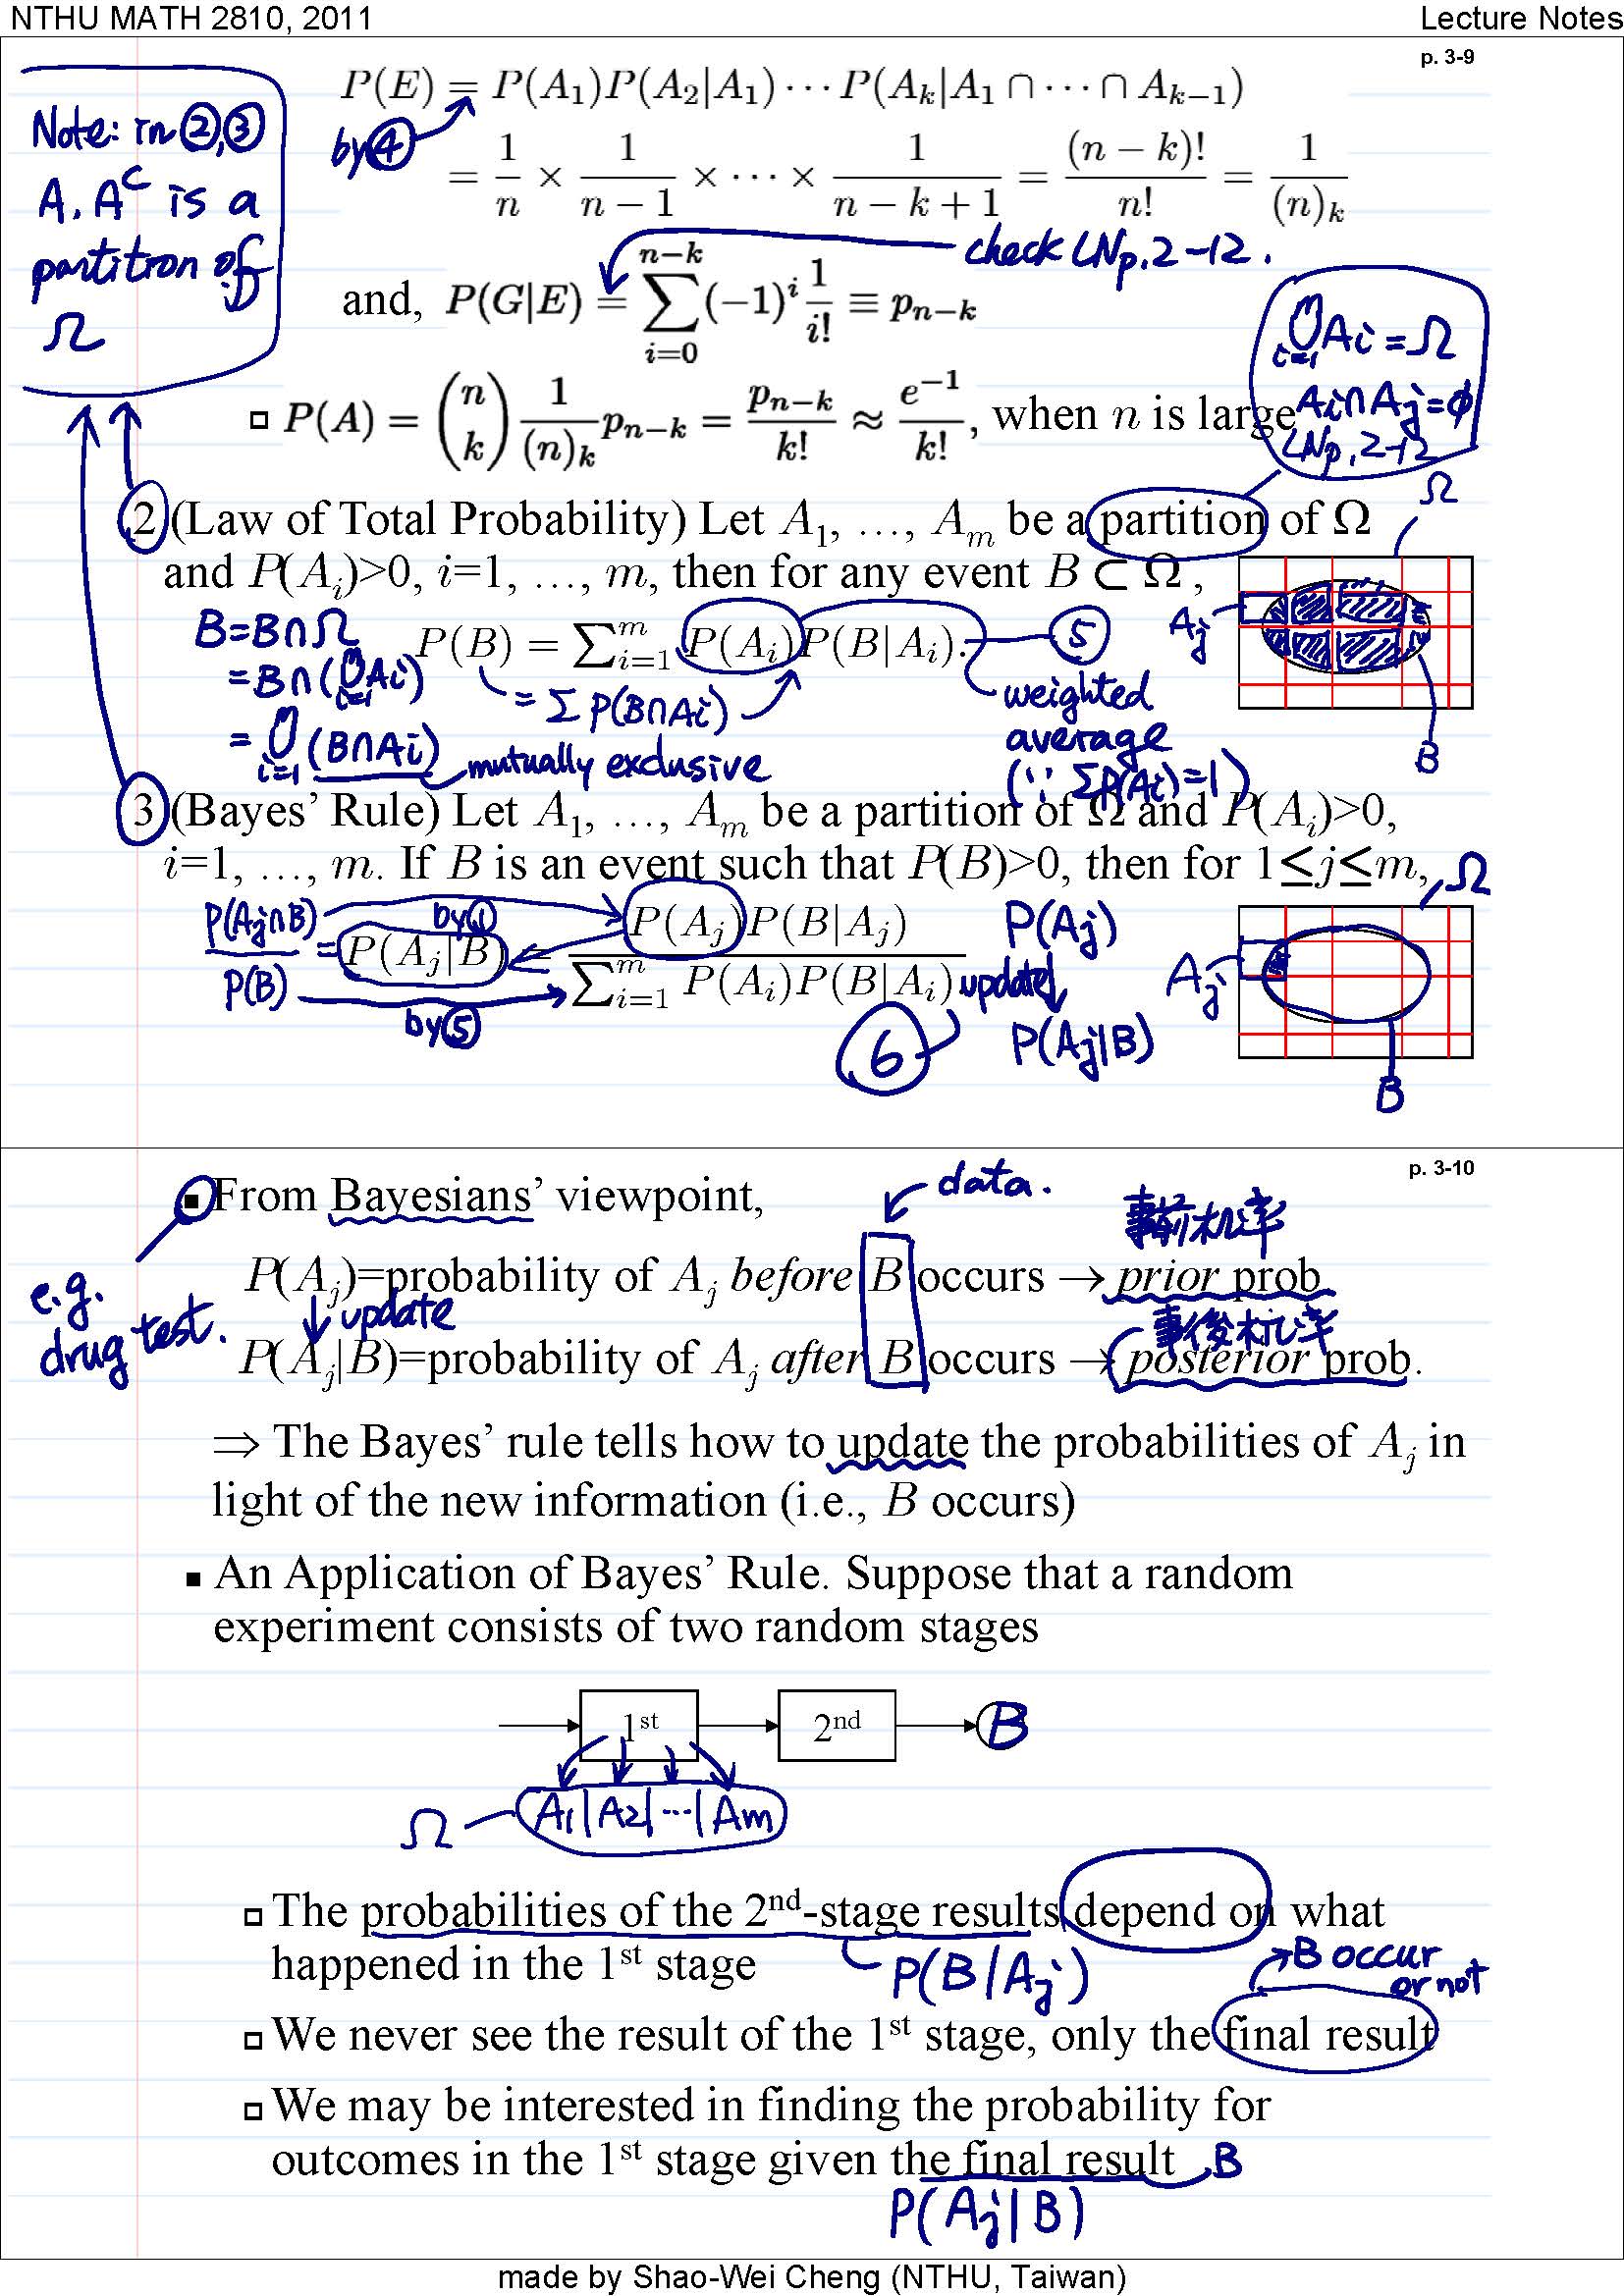 NTHU MATH 2810, 2011 Lecture Notes
p. 3-9
Note: in ②,③
A, A^C is a
partition of
Ω
P(E) = P(A₁)P(A₂|A₁)⋯P(A_k|A₁ ∩ ⋯ ∩ A_{k−1})
by ④
= 1/n × 1/(n−1) × ⋯ × 1/(n−k+1) = (n−k)!/n! = 1/(n)_k
check LNp.2-12.
and, P(G|E) = ∑_{i=0}^{n−k} (−1)^i 1/i! ≡ p_{n−k}
∪_{i=1} Ai = Ω
Ai∩Aj=φ
LNp.2-12
▫ P(A) = (n choose k) 1/(n)_k p_{n−k} = p_{n−k}/k! ≈ e^{−1}/k!, when n is large
Ω
2 (Law of Total Probability) Let A₁, …, A_m be a partition of Ω
and P(A_i)>0, i=1, …, m, then for any event B ⊂ Ω,
B=B∩Ω
P(B) = ∑_{i=1}^m P(A_i)P(B|A_i). ⑤
Aj
=B∩(∪_{i=1} Ai)
= Σ P(B∩Ai)
weighted
average
(∵ ΣP(Ai)=1)
B
= ∪_{i=1} (B∩Ai) mutually exclusive
3 (Bayes' Rule) Let A₁, …, A_m be a partition of Ω and P(A_i)>0,
i=1, …, m. If B is an event such that P(B)>0, then for 1≤j≤m, Ω
P(Aj∩B)/P(B) = P(A_j|B) = P(A_j)P(B|A_j) / ∑_{i=1}^m P(A_i)P(B|A_i)
by ①
by ⑤
⑥
P(Aj)
update↓
P(Aj|B)
Aj
B
p. 3-10
▪ From Bayesians' viewpoint,
data.
事前机率
P(A_j)=probability of A_j before B occurs → prior prob.
e.g.
drug test.
↓update
事後机率
P(A_j|B)=probability of A_j after B occurs → posterior prob.
⇒ The Bayes' rule tells how to update the probabilities of A_j in
light of the new information (i.e., B occurs)
▪ An Application of Bayes' Rule. Suppose that a random
experiment consists of two random stages
1st 2nd B
Ω A1|A2|⋯|Am
▫ The probabilities of the 2nd-stage results depend on what
happened in the 1st stage
P(B|Aj)
B occur
or not
▫ We never see the result of the 1st stage, only the final result
▫ We may be interested in finding the probability for
outcomes in the 1st stage given the final result B
P(Aj|B)
made by Shao-Wei Cheng (NTHU, Taiwan)